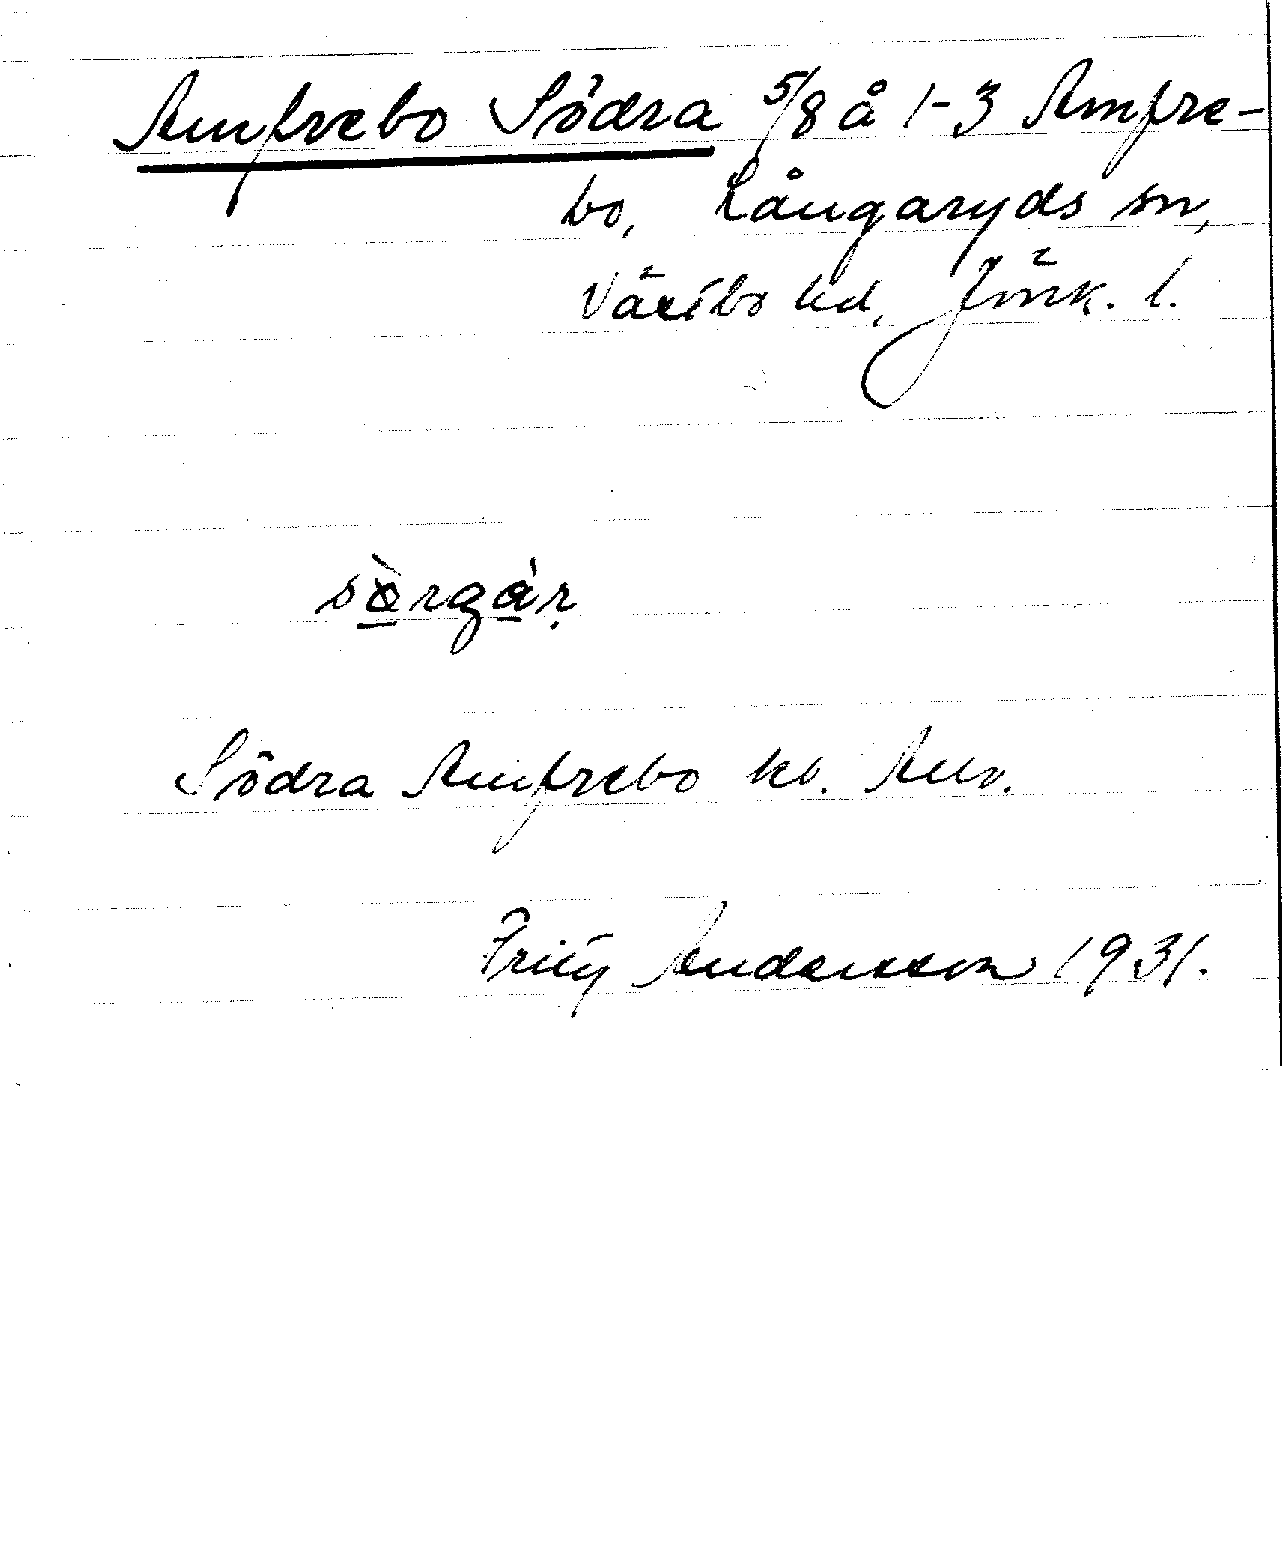 Amfrebo Södra 5/8 å 1-3 Amfre-
bo, Långaryds sn,
Västbo hd, Jönk. l.
sörgár
Södra Amfrebo kb. Allm.
Fritz Andersson 1931.